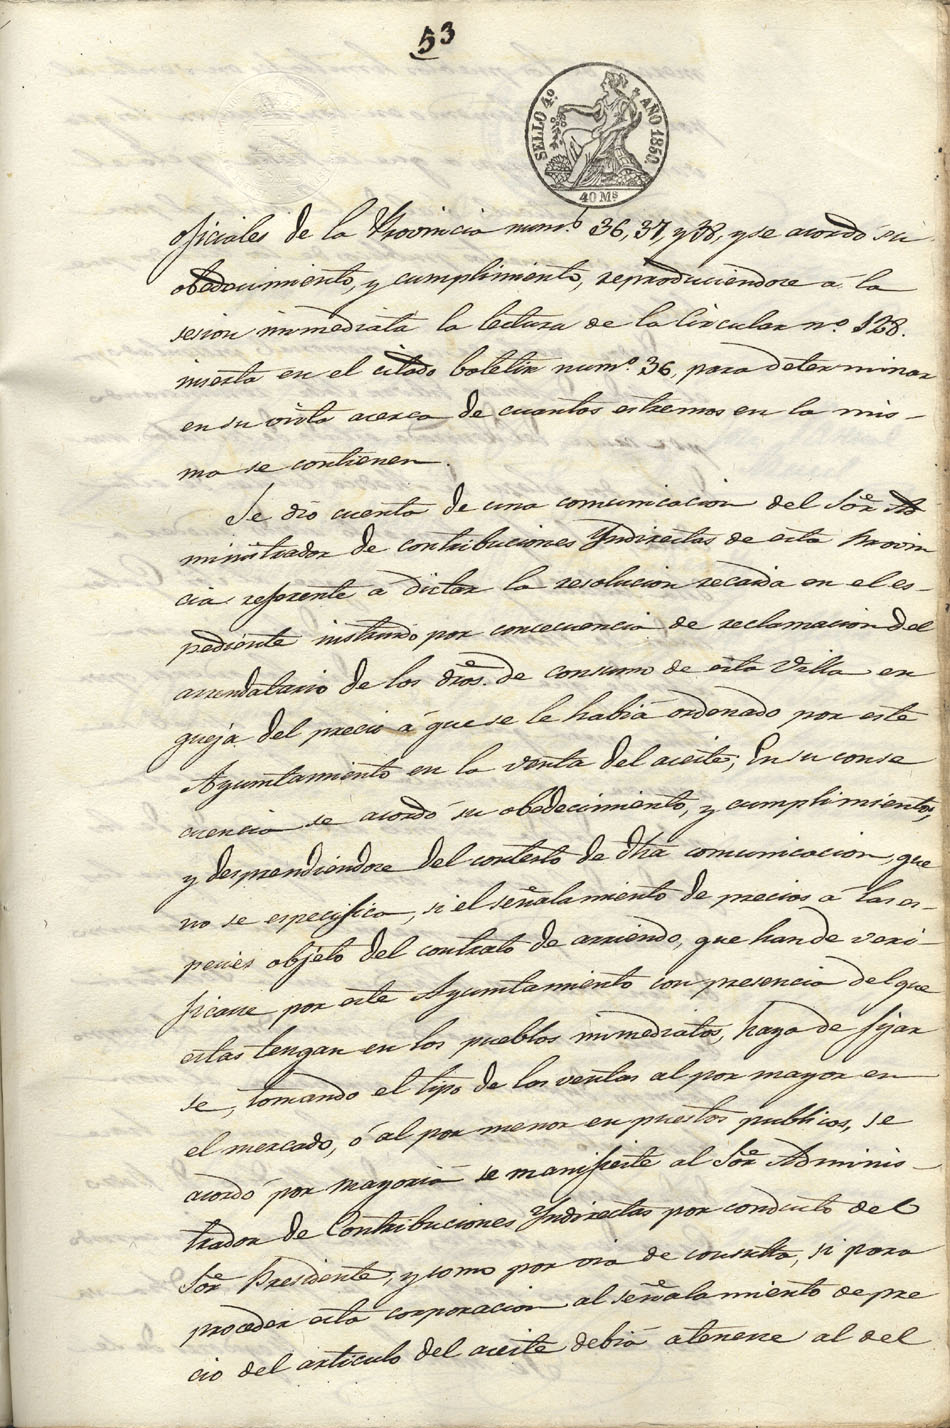 53
SELLO 4.º AÑO 1850.
40 Ms
oficiales de la Provincia num.s 36, 37, y 38, y se acordó su
obedecimiento, y cumplimiento, reproduciendose a la
sesion inmediata la lectura de la Circular n.º 128.
inserta en el citado boletin num.º 36, para determinar
en su vista acerca de cuantos estremos en la mis-
ma se contienen.
Se dió cuenta de una comunicacion del Sor. Ad
ministrador de contribuciones Yndirectas de esta Provin
cia referente a dictar la resolucion recaida en el es-
pediente instruido por concecuencia de reclamacion del
arrendatario de los dros. de consumo de esta Villa en
queja del precio á que se le habiá ordenado por este
Ayuntamiento en la venta del aceite; En su conse
cuencia se acordó su obedecimiento, y cumplimiento,
y desprendiendose del contesto de dha comunicacion, que
no se especifica, si el señalamiento de precios á las es-
pecies objeto del contrato de arriendo, que han de veri-
ficarse por este Ayuntamiento con presencia del que
estas tengan en los pueblos inmediatos, haya de fijar
se, tomando el tipo de las ventas al por mayor en
el mercado, ó al por menor en puestos publicos, se
acordó por mayoriá se manifieste al Sor. Adminis-
trador de Contribuciones Yndirectas por conducto del
Sor. Presidente, y como por via de consulta, si para
proceder esta corporacion al señalamiento de pre
cio del articulo del aceite debiá atenerse al del